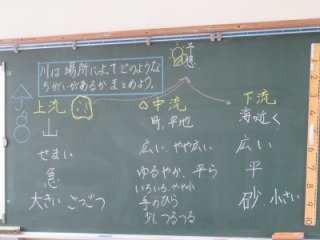 予想
川は場所によってどのような
ちがいがあるかまとめよう。
上流
中流
下流
山
町、平地
海の近く
せまい
広い、やや広い
広い
急
ゆるやか、平ら
平
大きい ごつごつ
いろいろ、やや小
手のひら
少しつるつる
砂 小さい